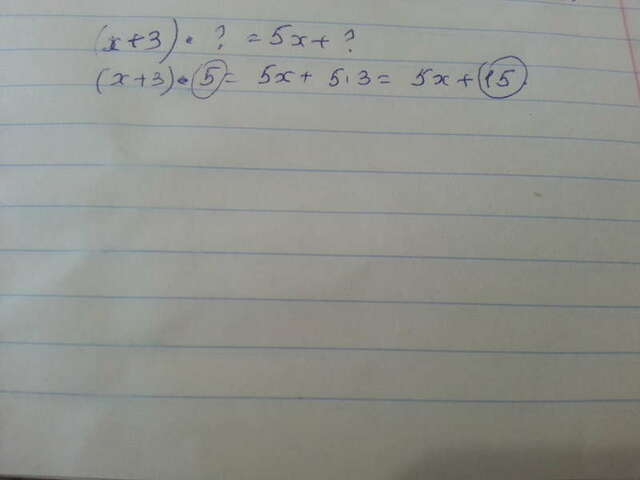 (x+3) • ? = 5x + ?
(x+3) • 5 = 5x + 5·3 = 5x + 15